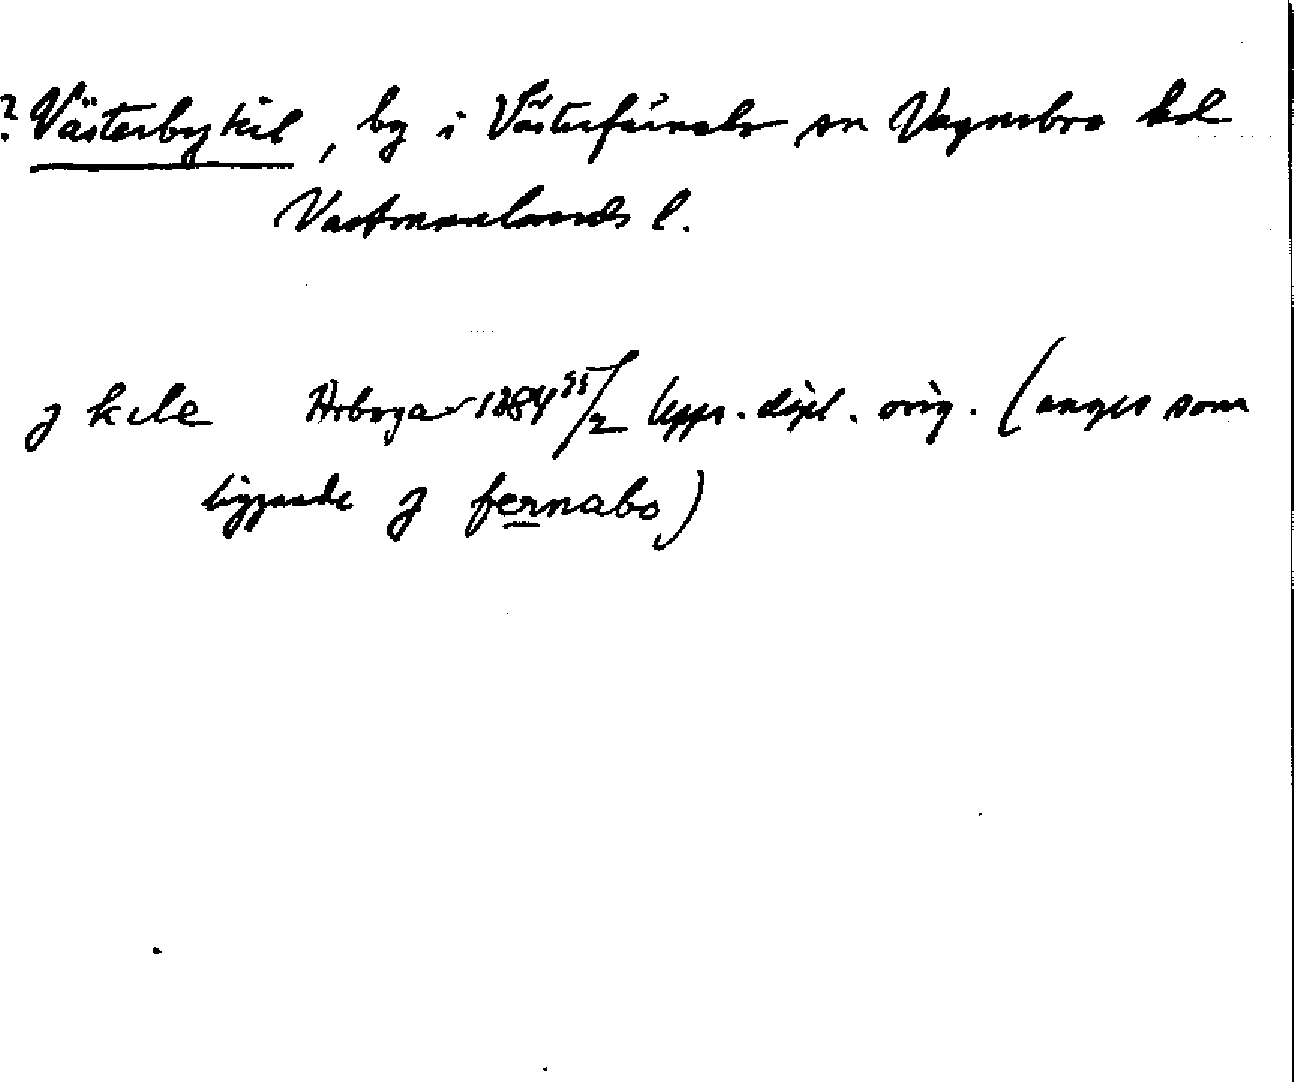 ? Västerbykil, by i Västerfärnebo sn Vagnsbro hd
Västmanlands l.
j kile Arboga 1384 25/2 Upps. dipl. orig. (anges som
liggande j fernabo)